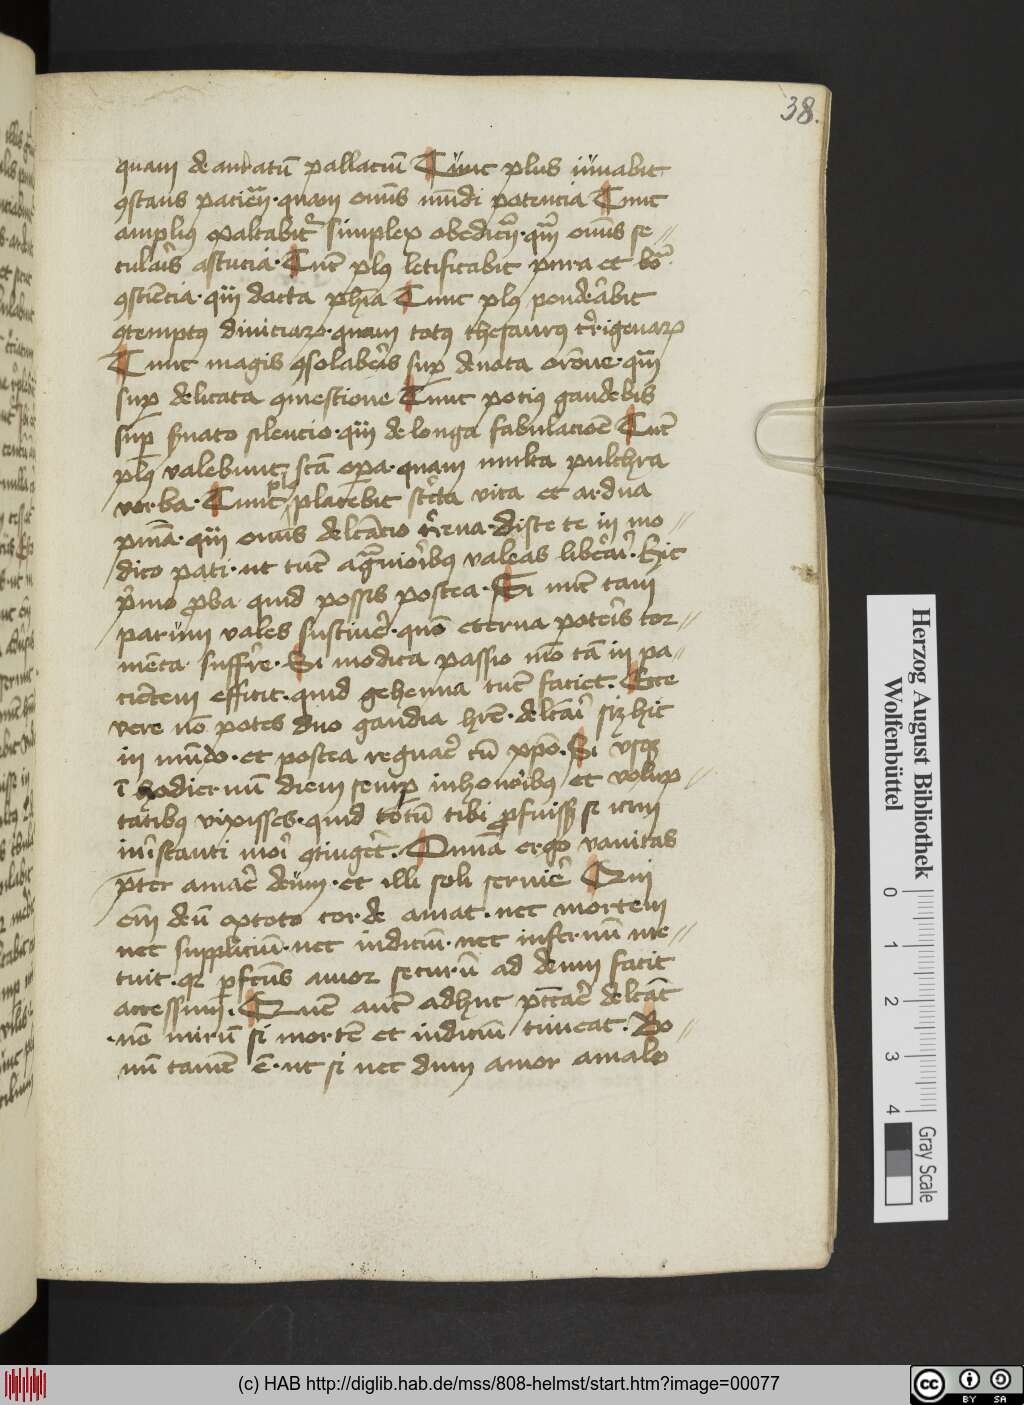 38.
quam deauratū pallaciū Tūnc plus iuuabit
ꝯstans pacien̄· quam om̄s mūdi potencia Tunc
amplius exaltabitᷣ simplex obedien̄· qm̄ om̄s se〃
cularis astucia· Tūc plꝰ letificabit pura et bōa
ꝯsciēcia· qm̄ docta phīa Tunc plꝰ ponderabit
ꝯtemptꝰ diuiciaꝝ· quam totꝰ thesaurꝰ tr̄rigenaꝝ
Tunc magis ꝯsolaberis suꝑ deuota orōne· qm̄
suꝑ delicata ꝯmestione Tunc pociꝰ gaudebis
suꝑ seruato silencio· qm̄ de longa fabulacioē Tūc
plꝰ valebunt sc̄a oꝑa· quam multa pulchra
verba· Tunc plꝰ placebit stͥcta vita et ardua
pn̄ia· qm̄ om̄is delcācio tr̄rena· disce te in mo〃
dico pati· ut tūc a gͣuioribꝰ valeas liberari· Hic
pͥmo ꝓba quid possis postea· Si nūc tam
parum vales sustinē· quō eterna poteris tor〃
menta suffr̄re· Si modica passio mō tā in pa〃
cientem efficit· quid gehenna tūc faciet· Ecce
vere nō potes duo gaudia hr̄e· delc̄ari siꝫ hic
in mūdo· et postea regnar̄ cū xp̄o· Si vsqꝫ
ī hodiernū diem semꝑ in honoribꝰ et volup〃
tatibꝰ vixisses· quid totū tibi ꝓfuissꝫ se iam
in īstanti mori ꝯtinger̄t· Omīa ergo vanitas
p̄ter amar̄ deum· et illi soli seruir̄ Qui
em̄ deū ex toto corde amat· nec mortem
nec suppliciū· nec iudiciū· nec infernū me〃
tuit· qꝛ ꝑfc̄us amor securū ad deum facit
accessum· Quē aūt adhuc pc̄car̄ delc̄at
·nō mirū si mortē et iudiciū timeat· Bo〃
nū tamē ē· ut si nec dum amor a malo
Herzog August Bibliothek
Wolfenbüttel
0 1 2 3 4
Gray Scale
(c) HAB http://diglib.hab.de/mss/808-helmst/start.htm?image=00077
cc BY SA